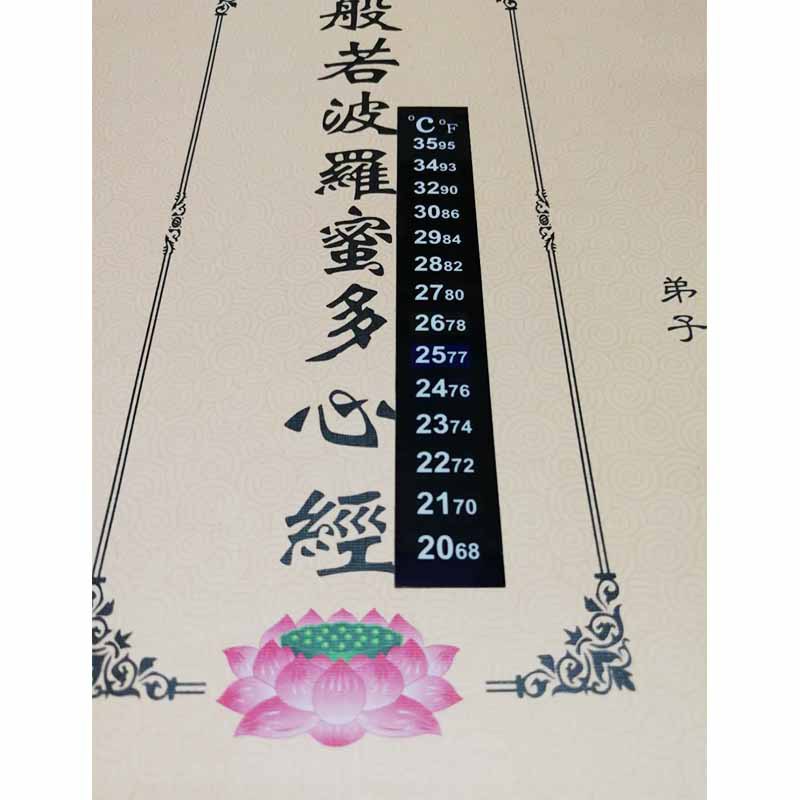 般若波羅蜜多心經
°C °F
35 95
34 93
32 90
30 86
29 84
28 82
27 80
26 78
25 77
24 76
23 74
22 72
21 70
20 68
弟子